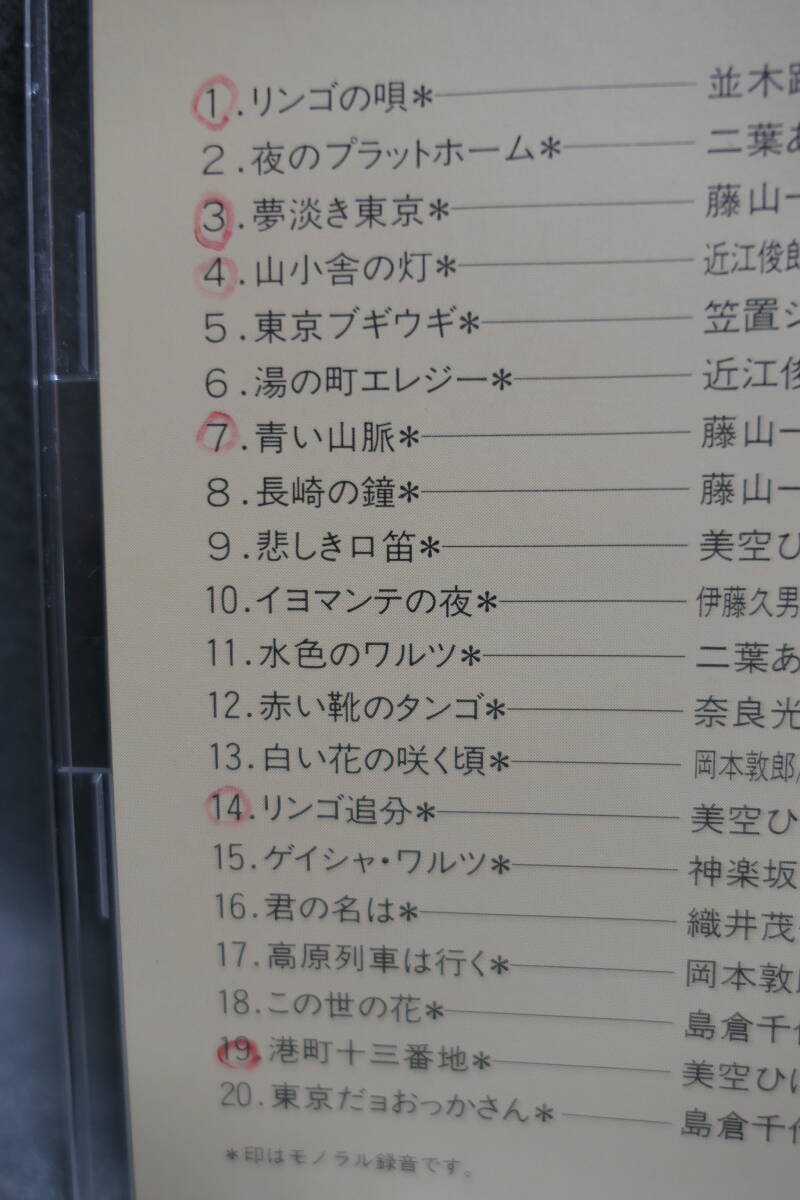 1.リンゴの唄*――並木路
2.夜のプラットホーム*――二葉あ
3.夢淡き東京*――藤山一
4.山小舎の灯*――近江俊郎
5.東京ブギウギ*――笠置シ
6.湯の町エレジー*――近江俊
7.青い山脈*――藤山一
8.長崎の鐘*――藤山一
9.悲しき口笛*――美空ひ
10.イヨマンテの夜*――伊藤久男
11.水色のワルツ*――二葉あ
12.赤い靴のタンゴ*――奈良光
13.白い花の咲く頃*――岡本敦郎/
14.リンゴ追分*――美空ひ
15.ゲイシャ・ワルツ*――神楽坂
16.君の名は*――織井茂
17.高原列車は行く*――岡本敦郎
18.この世の花*――島倉千代
19.港町十三番地*――美空ひば
20.東京だョおっかさん*――島倉千代
*印はモノラル録音です。